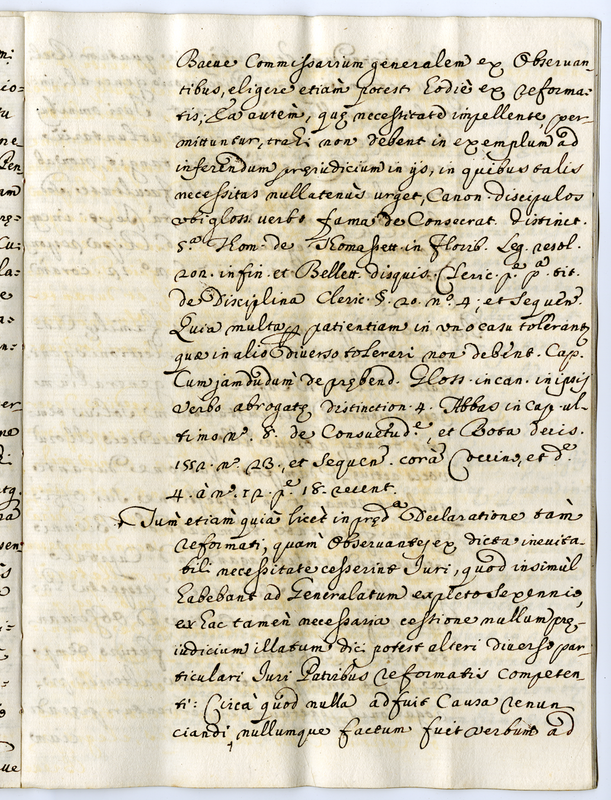 Baeve Commissarium generalem ex Observan-
tibus, eligere etiam potest hodie ex reforma-
tis; Ea autem, quę necessitate impellente, per-
mittuntur, trahi non debent in exemplum ad
inferendum pręiudicium in ijs, in quibus talis
necessitas nullatenus urget, Canon. discipulos
ubi gloss. verbo fama de Consecrat. distinct.
5.ª Thom. de Thomassett. in florib. Leg. resol.
201. in fin. et Bellett. disquis. Cleric. p.ª p.ª tit.
de Disciplina Cleric. §. 20. n.º 4, et Sequen.
Quia multa p patientiam in uno casu tolerant.
quæ in alio diverso tolerari non debent. Cap.
Cum jamdudum de prębend. Gloss. in can. in ipsis
verbo abrogatę distinction. 4. Abbas in cap. ul-
timo n.º 8. de Consuetud.e, et Rota decis.
1552. n.º 23, et Sequen. corã Coccino, et d.e
4. à n.º 12. p.e 18. recent.
Tum etiam quia licet in pręd.a Declaratione tàm
reformati, quàm Observantes ex dicta inevita-
bili necessitate cesserint Juri, quod insimùl
habebant ad Generalatum expleto sexennio,
ex hac tamen necessaria cessione nullum prę-
iudicium illatum dici potest alteri diverso par-
ticulari Juri Patribus reformatis competen
ti: Circa quod nulla adfuit Causa renun
ciandi, nullumque factum fuit verbum ad